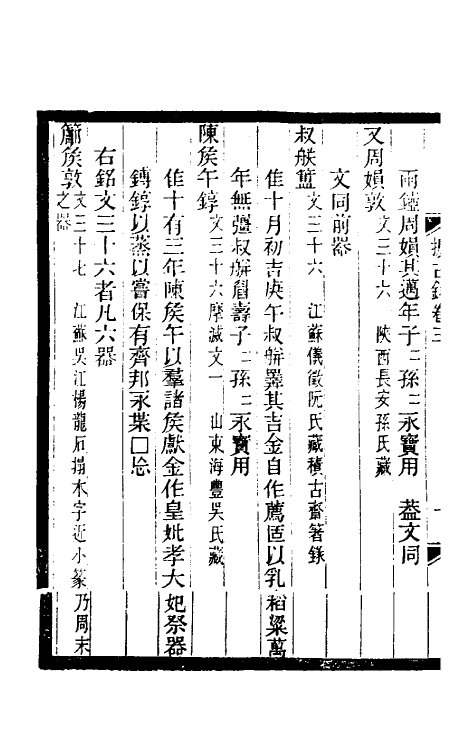 兩鐘周嬶其邁年子二孫二永寶用　葢文同
又周嬶敦 文三十六　陝西長安孫氏藏
文同前器
叔朕簠 文三十六　江蘇儀徵阮氏藏積古齋箸錄
隹十月初吉庚午叔朕擇其吉金自作薦簠以𠃨稻粱萬
年無彊叔朕眉壽子二孫二永寶用
陳矦午錞 文三十六摩滅文一　山東海豐吳氏藏
隹十有三年陳矦午以羣諸矦獻金作皇妣孝大妃祭器
鎛錞以蒸以嘗保有齊邦永枼□忘
右銘文三十六者凡六器
簫矦敦 文三十七　江蘇吳江楊龍石搨本字近小篆乃周末
之器
攈古錄卷三